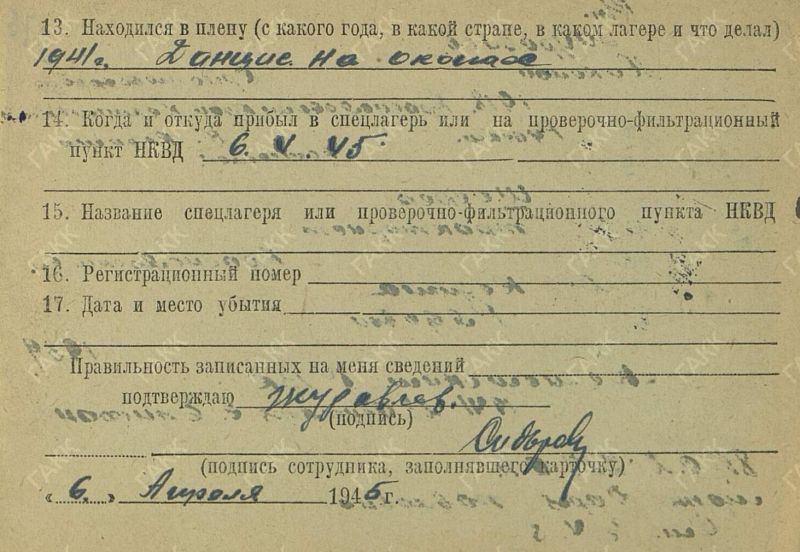 13. Находился в плену (с какого года, в какой стране, в каком лагере и что делал)
1941 г. Данциг. на окопах
14. Когда и откуда прибыл в спецлагерь или на проверочно-фильтрационный
пункт НКВД 6. 4. 45.
15. Название спецлагеря или проверочно-фильтрационного пункта НКВД
16. Регистрационный номер
17. Дата и место убытия
Правильность записанных на меня сведений
подтверждаю Журавлев.
(подпись)
(подпись сотрудника, заполнявшего карточку)
« 6. » Апреля 1945 г.